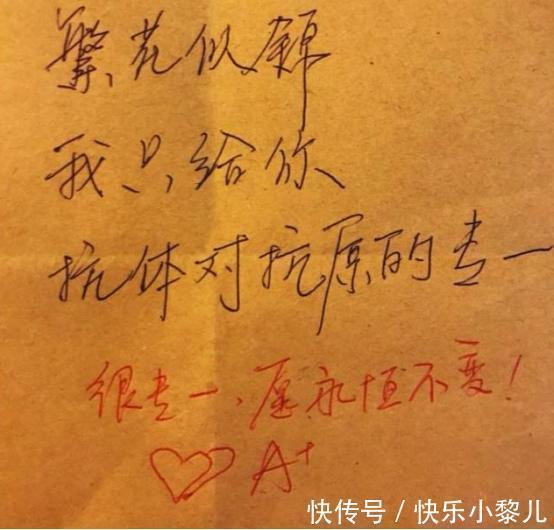 繁花似锦
我只给你
抗体对抗原的专一
很专一、愿永恒不变！
A+
快传号 / 快乐小黎儿